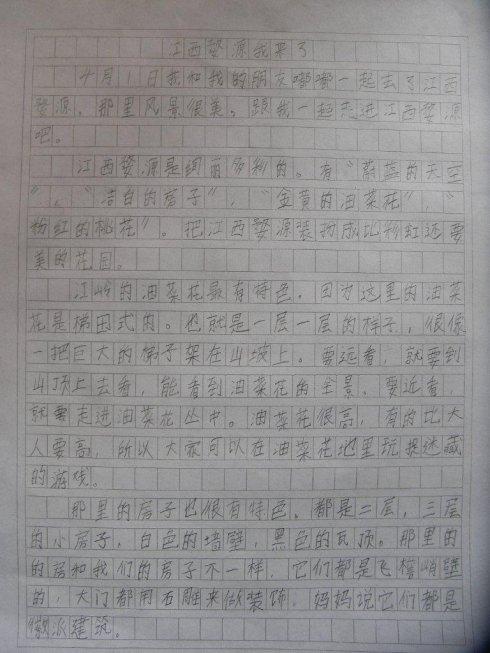 江西婺源我来了
4月1日我和我的朋友嘟嘟一起去了江西
婺源，那里风景很美，跟我一起走进江西婺源
吧。
江西婺源是绚丽多彩的。有“蔚蓝的天空
”、“洁白的房子”、“金黄的油菜花”、“
粉红的桃花”。把江西婺源装扮成比彩虹还要
美的花园。
江岭的油菜花最有特色。因为这里的油菜
花是梯田式的。也就是一层一层的样子，很像
一把巨大的梯子架在山坡上。要远看，就要到
山顶上去看，能看到油菜花的全景。要近看，
就要走进油菜花丛中。油菜花很高，有的比大
人要高，所以大家可以在油菜花地里玩捉迷藏
的游戏。
那里的房子也很有特色。都是二层，三层
的小房子。白色的墙壁，黑色的瓦顶。那里的
的房和我们的房子不一样，它们都是飞檐峭壁
的，大门都用石雕来做装饰。妈妈说它们都是
徽派建筑。